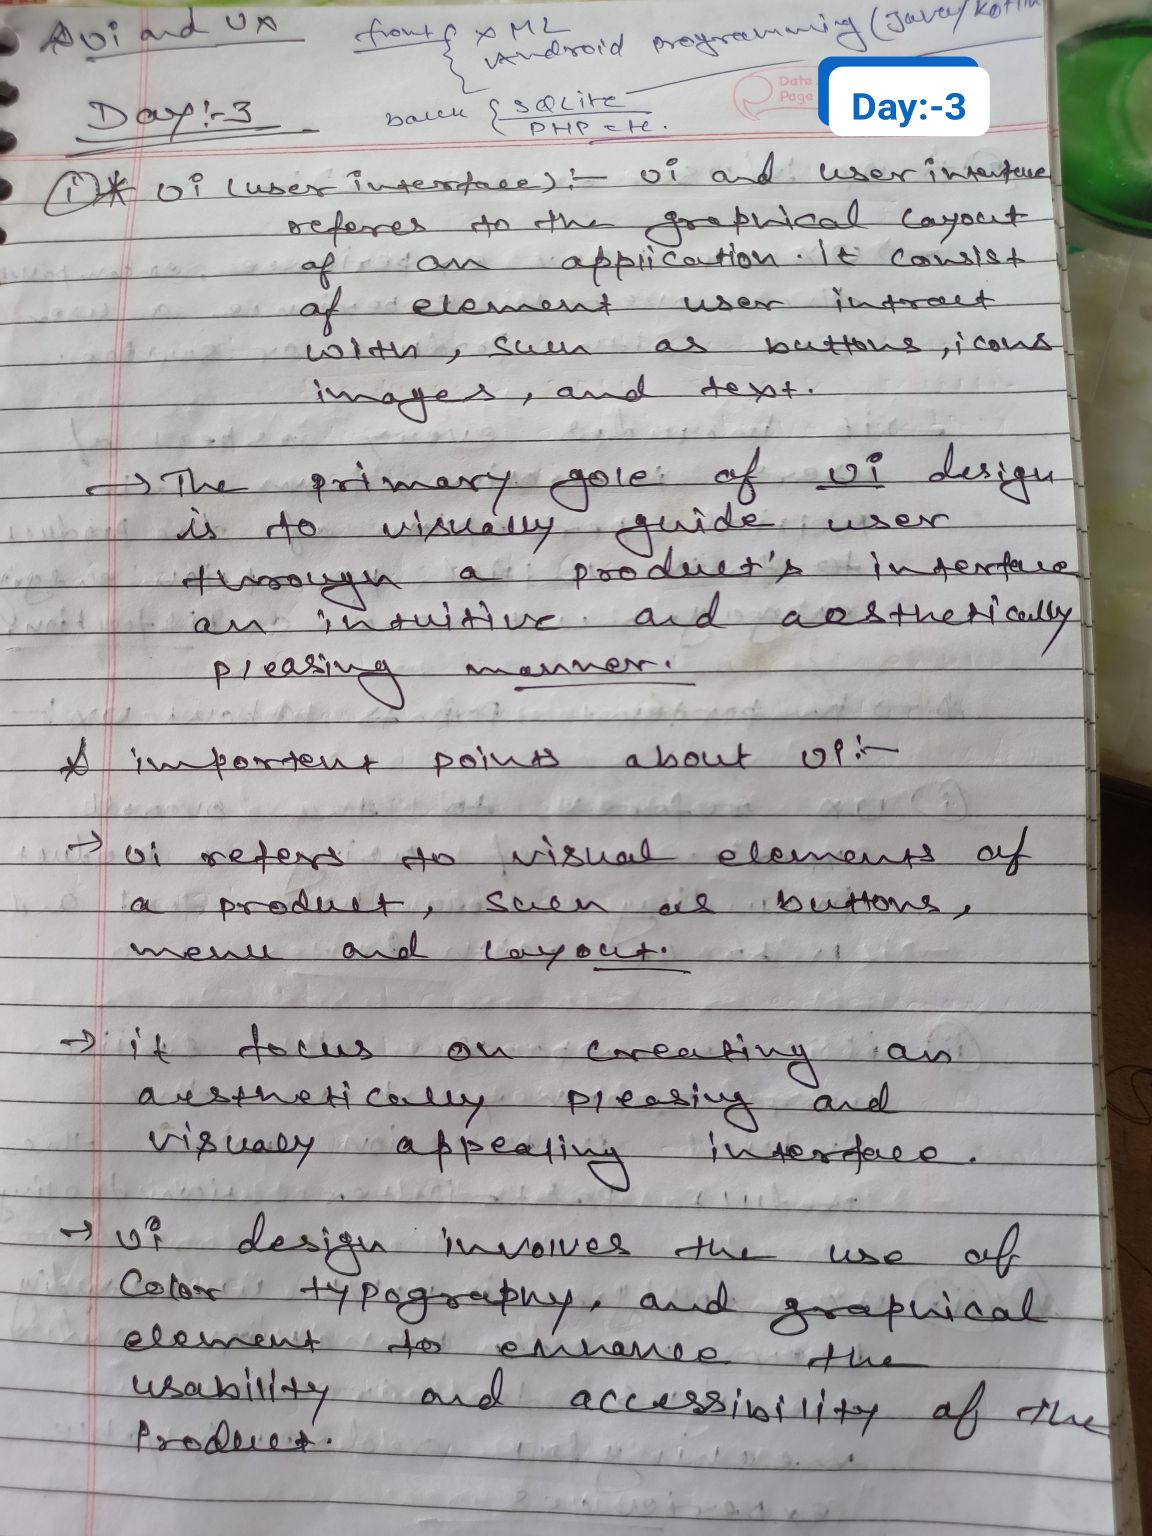 UI and UX
front { XML
Android programming (Java/Kotlin
Date
Page
Day:-3
Day:-3
back { SQLite
PHP
(i)* UI (user interface):- UI and user interface
referes to the graphical layout
of an application. it consist
of element user intract
with, such as buttons, icons
images, and text.
→ The primary gole of UI design
is to visually guide user
through a product's interface
an intuitive and aosthetically
pleasing manner.
* importent points about UI:-
→ UI refers to visual elements of
a product, such as buttons,
menu and layout.
→ it focus on creating an
aesthetically pleasing and
visualy appealing interface.
→ UI design involves the use of
Color typography, and graphical
element to enhance the
usability and accessibility of the
Product.